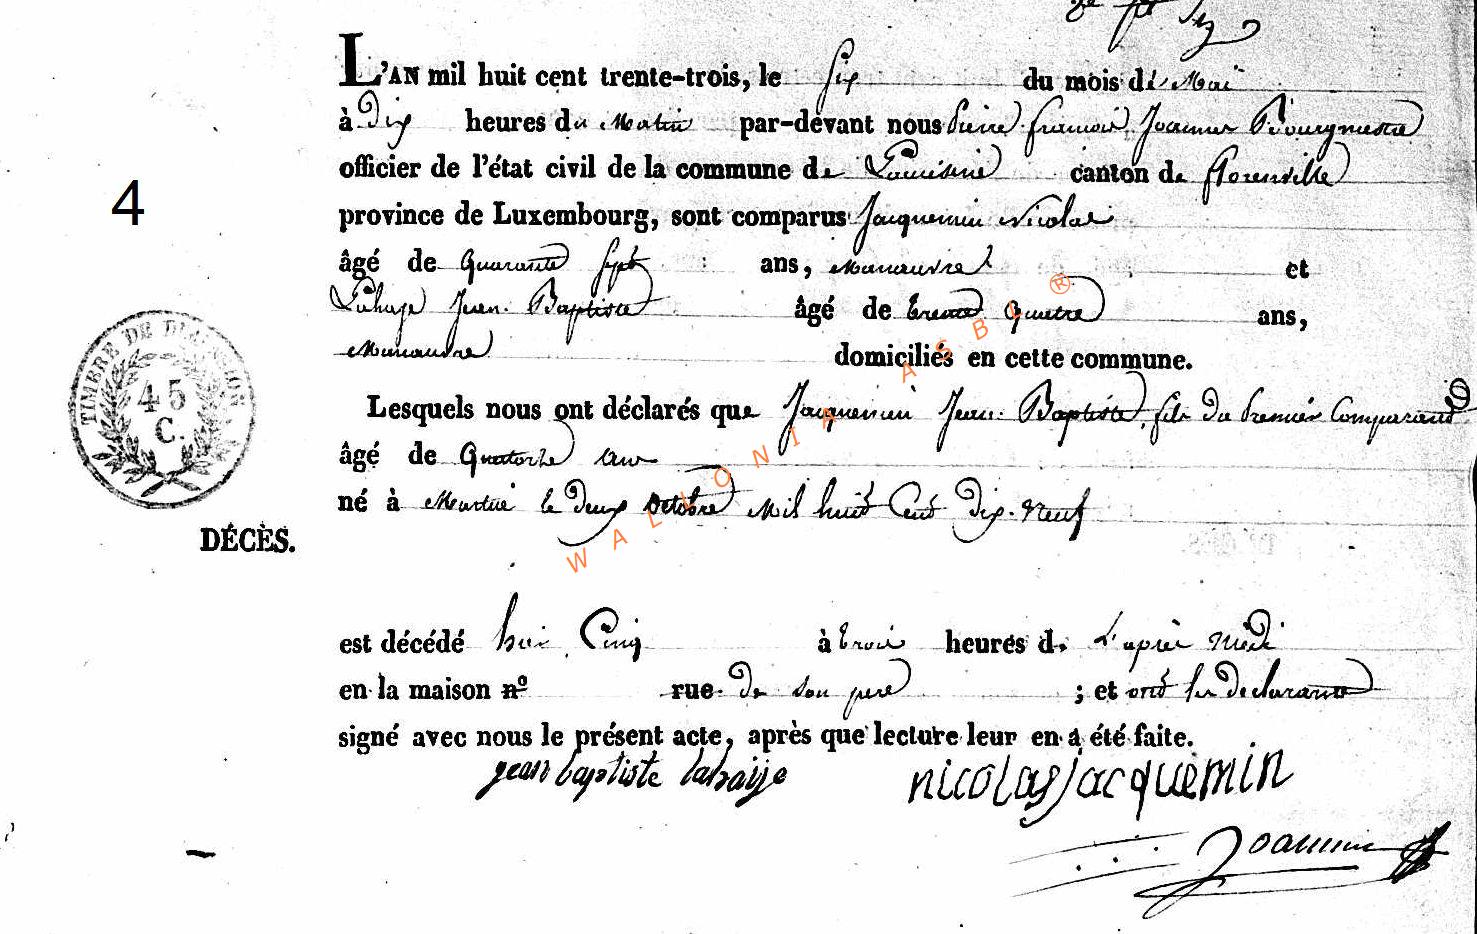 L'AN mil huit cent trente-trois, le six du mois de Mai
à Dix heures du Matin par-devant nous Pierre françois Joannes Bourgmestre
officier de l'état civil de la commune de canton de florenville
province de Luxembourg, sont comparus Jacquemin Nicolas
âgé de Quarante sept ans, Manœuvre et
Lahage Jean Baptiste âgé de trente Quatre ans,
4
Manœuvre domiciliés en cette commune.
TIMBRE DE DIMENSION
45
C.
Lesquels nous ont déclarés que Jacquemin Jean Baptiste, fils du premier Comparand
âgé de Quatorze ans
né à Martué le deux Octobre Mil huit Cent Dix-Neuf
DÉCÈS.
est décédé hier Cinq à trois heures de L'après Midi
en la maison nº rue De son père ; et ont les declarants
signé avec nous le présent acte, après que lecture leur en a été faite.
jean baptiste lahaije nicolas jacquemin
WALLONIA ASBL ®